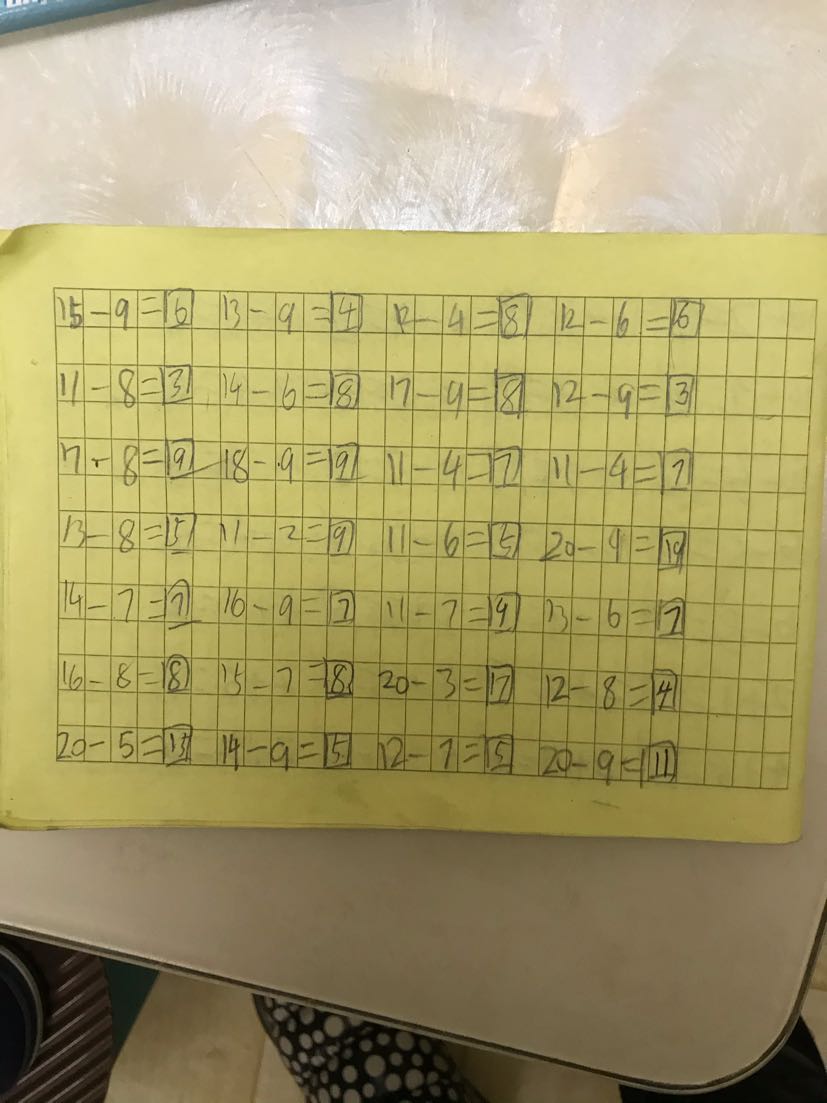 15-9=6 13-9=4 12-4=8 12-6=6
11-8=3 14-6=8 17-9=8 12-9=3
17-8=9 18-9=9 11-4=7 11-4=7
13-8=5 11-2=9 11-6=5 20-9=19
14-7=7 16-9=7 11-7=4 13-6=7
16-8=8 15-7=8 20-3=17 12-8=4
20-5=15 14-9=5 12-7=5 20-9=11